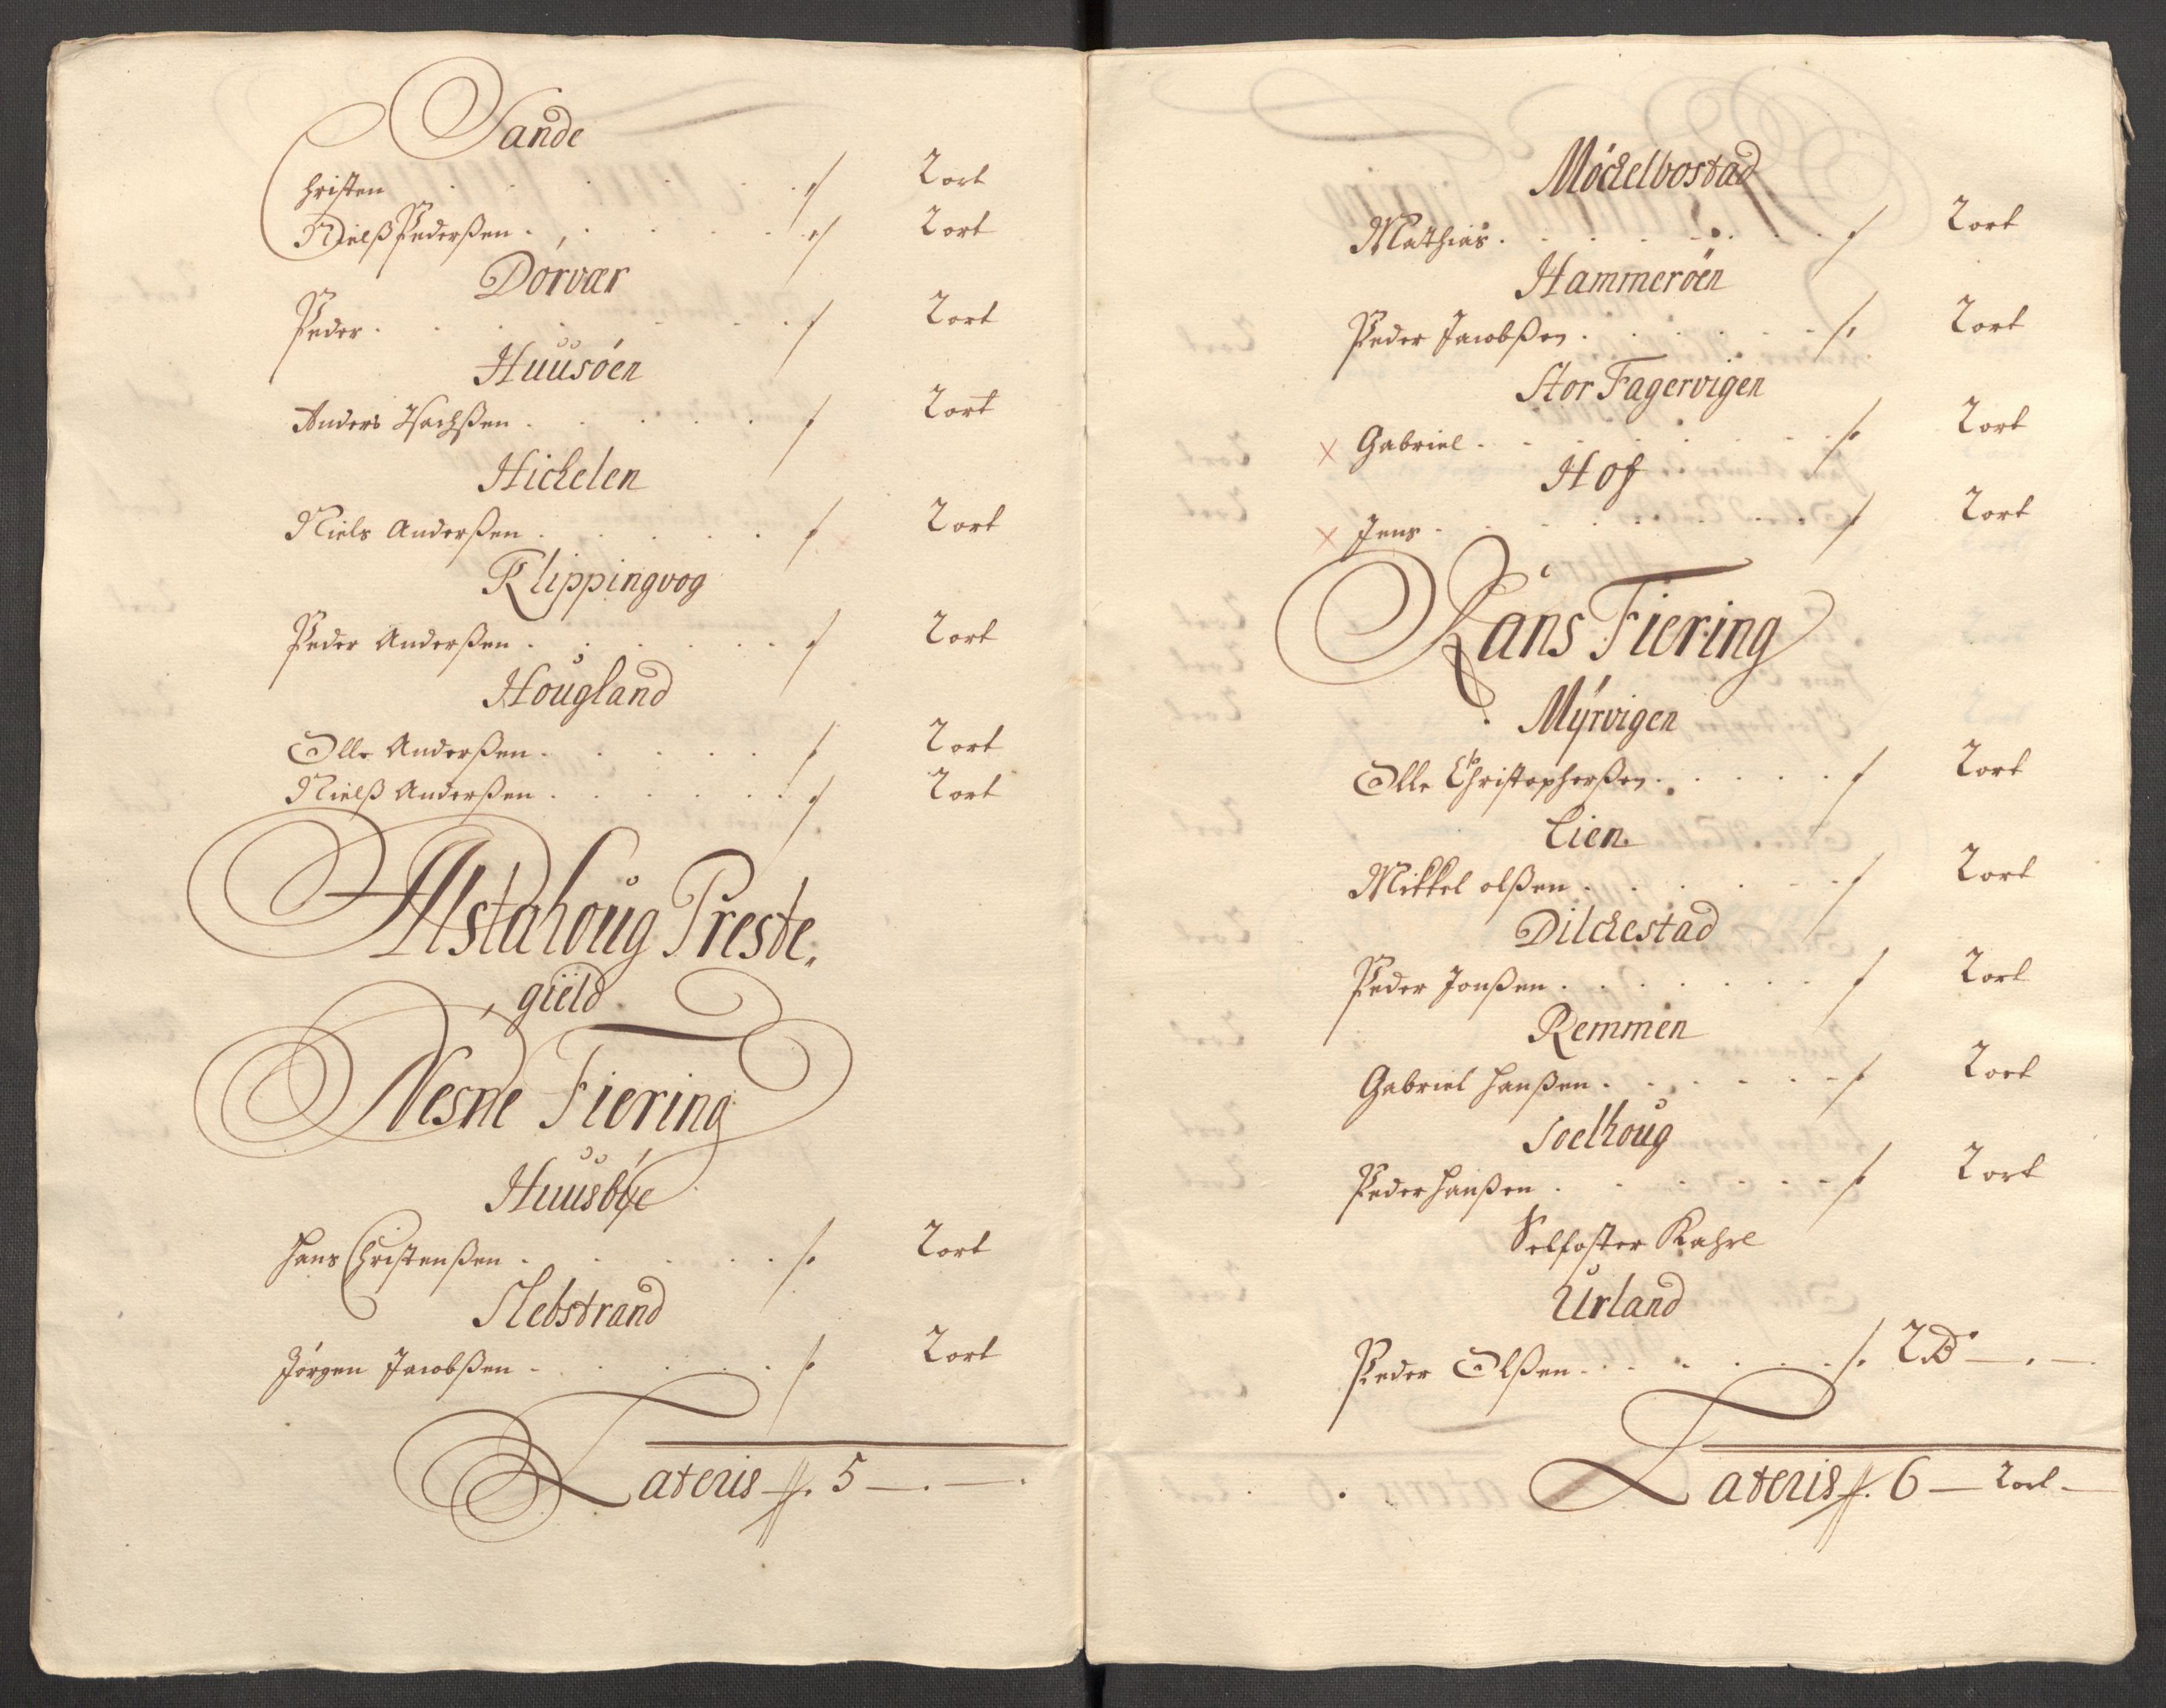 Sande
Christen . . . . . . . 2 ort
Nielß Pederßen . . . . . . 2 ort
Dórvær
Peder . . . . . . . 2 ort
Huusöen
Anders Isachßen . . . . . 2 ort
Hickelen
Niels Anderßen . . . . . 2 ort
Klippingvog
Peder Anderßen . . . . . . 2 ort
Hougland
Olle Anderßen . . . . . 2 ort
Nielß Anderßen . . . . . . 2 ort
Alstahoug Preste,,
gield
Nesne Fiering
Huusbÿe
Hans Christenßen . . . . . 2 ort
Slebstrand
Jörgen Jacobßen . . . . . 2 ort
Lateris 5 — . —
Möckelbostad
Mathias . . . . . . . 2 ort
Hammeröen
Peder Jacobßen . . . . . . 2 ort
Stor Fagervigen
× Gabriel . . . . . . . 2 ort
Hof
× Jens . . . . . . . 2 ort
Rans Fiering
Mÿrvigen
Olle Christopherßen . . . . . 2 ort
Lien
Mikkel olßen . . . . . . 2 ort
Dilckestad
Peder Jonßen . . . . . . 2 ort
Remmen
Gabriel Hanßen . . . . . . 2 ort
Soelhoug
Peder Hanßen . . . . . . 2 ort
Selfoster Kahrl
Urland
Peder Olßen . . . . . . 2 — . —
Lateris 6 — 2 ort —